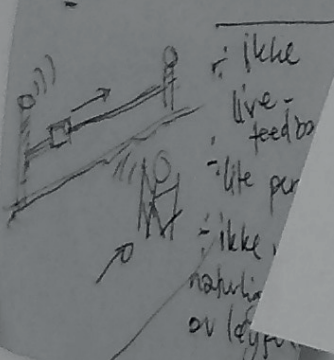 ÷ ikke
live-
feedba
÷ lite per
÷ ikke
naturlig
av